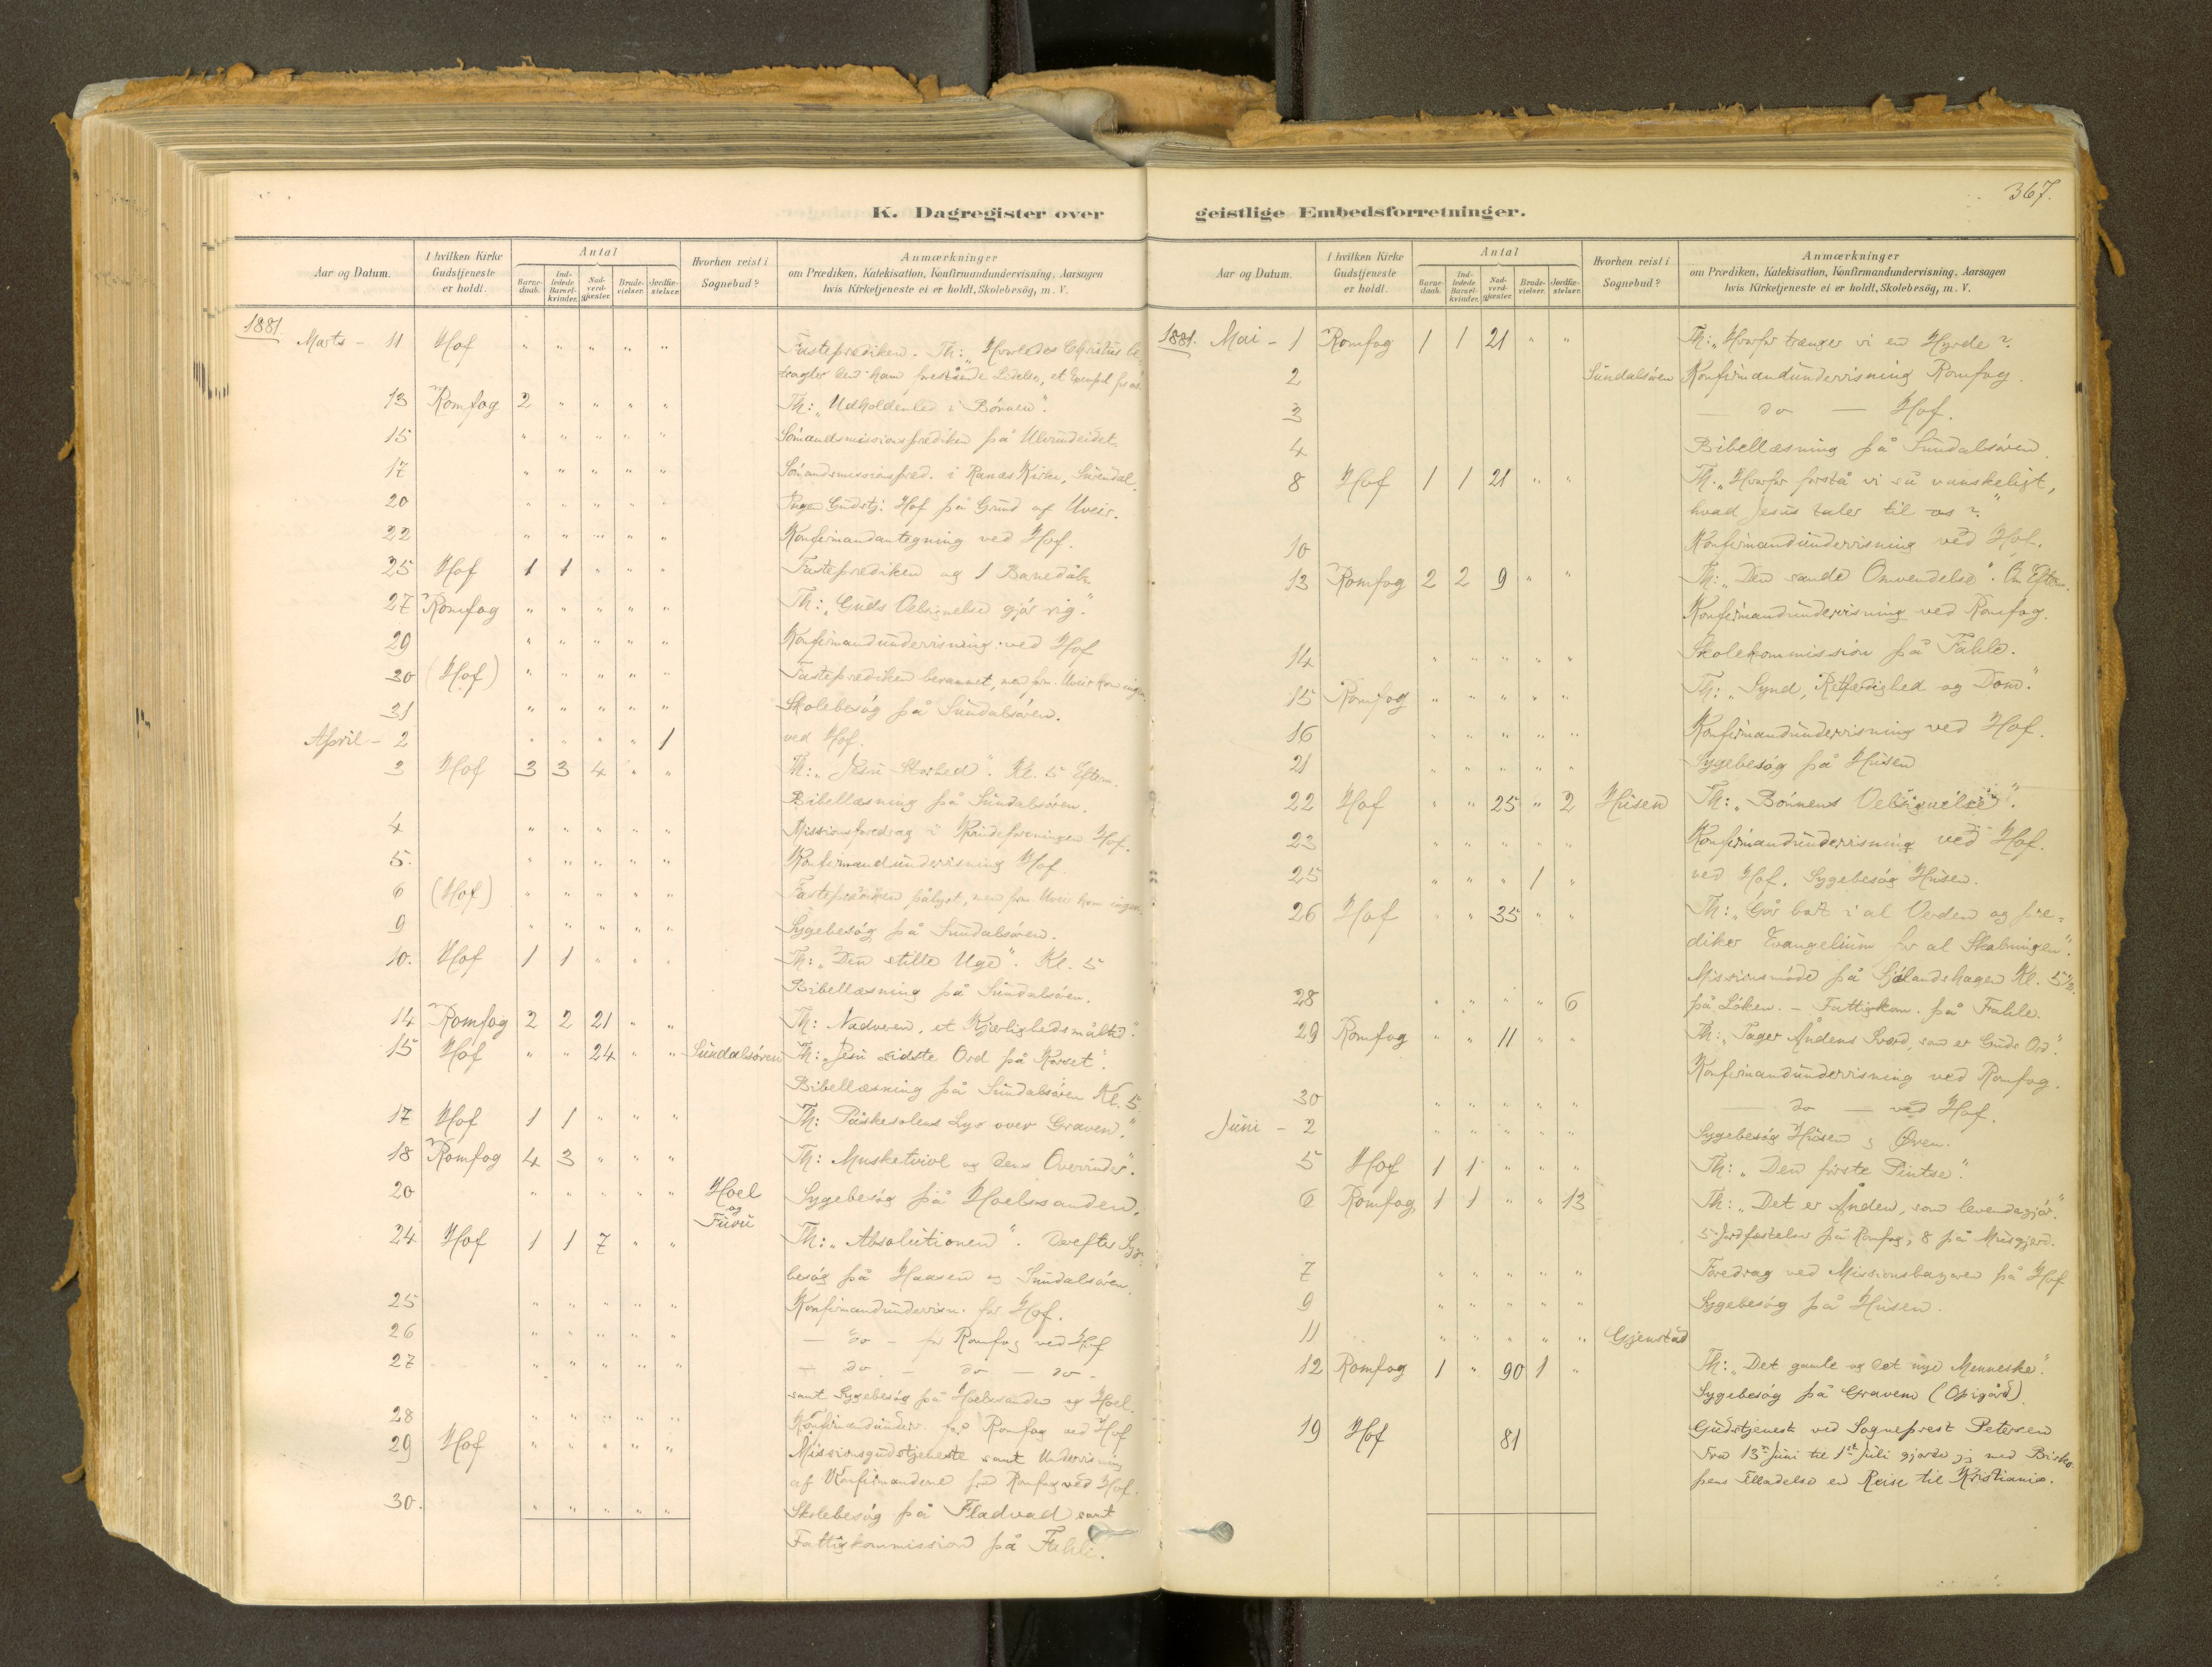 367.
K. Dagregister over geistlige Embedsforretninger.
Aar og Datum. I hvilken Kirke Gudstjeneste er holdt. Antal Barnedaab. Indledede Barselkvinder. Nadverdgjester. Brudevielser. Jordfæstelser. Hvorhen reist i Sognebud? Anmærkninger om Prædiken, Katekisation, Konfirmandundervisning, Aarsagen hvis Kirketjeneste ei er holdt, Skolebesög, m. V.
1881.
Marts - 11 Hof " " " " " Fasteprædiken. Th: „Hvorledes Christus be-
tragter den ham forestående Lidelse, et Exempel for os.
13 Romfog 2 " " " " Th: „Udholdenhed i Bønnen".
15 " " " " " Sömandsmissionsprædiken på Ulvundeidet.
17 " " " " " Sömandsmissionspred. i Ranæs Kirke, Surendal.
20 " " " " " Ingen Gudstj: Hof på Grund af Uveir.
22 " " " " " Konfirmandantegning ved Hof.
25 Hof 1 1 " " " Fasteprediken og 1 Barnedåb.
27 Romfog " " " " " Th: „Guds Velsignelse gjör rig".
29 " " " " " Konfirmandundervisning ved Hof
30 (Hof) " " " " " Fasteprediken berammet, men frm. Uveir kom ingen.
31 " " " " " Skolebesög på Sundalsören.
April - 2 " " " " 1 ved Hof.
3 Hof 3 3 4 " " Th: „Jesu Storhed". Kl. 5 Eftm.
Bibellæsning på Sundalsören.
4 " " " " " Missionsforedrag i Kvindeforeningen Hof.
5. " " " " " Konfirmandundervisning Hof.
6 (Hof) " " " " " Fasteprediken pålyst, men frm. Uveir kom ingen.
9 " " " " " Sygebesög på Sundalsören.
10. Hof 1 1 " " " Th: „Den stille Uge". Kl. 5
Bibellæsning på Sundalsören.
14 Romfog 2 2 21 " " Th: Nadveren, et Kjærlighedsmåltid".
15 Hof " " 24 " " Sundalsören Th: „Jesu sidste Ord på Korset".
Bibellæsning på Sundalsören Kl. 5
17 Hof 1 1 " " " Th: Påskesolens Lys over Graven."
18 Romfog 4 3 " " " Th: Mushetvivl og dens Overvinder".
20 " " " " " Hoel og Furu Sygebesög på Hoelssanden.
24 Hof 1 1 7 " " Th: „Absolutionen". Derefter Syge-
besög på Haasen og Sundalsören.
25 " " " " " Konfirmandundervisn. for Hof.
26 " " " " " — do - for Romfog ved Hof
27 " " " " " — do - do — do -
samt Sygebesög på Hoelssanden og Hoel.
28 " " " " " Konfirmandunderv. for Romfog ved Hof
29 Hof " " " " " Missionsgudstjeneste samt Undervisning
af Konfirmanderne fra Romfog ved Hof.
30. " " " " " Skolebesög på Fladvad samt
Fattigkommission på Fahle.
1881. Mai - 1 Romfog 1 1 21 " " Th: „Hvorfor trænger vi en Hyrde?
2 Sundalsören Konfirmandundervisning Romfog.
3 — do — Hof.
4 Bibellæsning på Sundalsören.
8 Hof 1 1 21 " " Th. „Hvorfor forstå vi så vanskeligt,
hvad Jesus taler til os?"
10 Konfirmandundervisning ved Hof.
13 Romfog 2 2 9 " " Th: „Den sande Omvendelse". Om Eftm.
Konfirmandundervisning ved Romfog.
14 " " " " " Skolekommission på Fahle.
15 Romfog " " " " " Th: „Synd, Retfærdighed og Dom."
16 " " " " " Konfirmandundervisning ved Hof.
21 " " " " " Sygebesög på Husen
22 Hof " " 25 " 2 Husen Th: „Bönnens Velsignelse".
23 " " " " " Konfirmandundervisning ved Hof.
25 " " " 1 " ved Hof. Sygebesög Husen.
26 Hof " " 35 " " Th: „Går bort i al Verden og præ-
diker Evangelium for al Skabningen".
Missionsmöde på Sjölandshagen Kl. 5½.
28 " " " " 6 på Löken. - Fattigkom. på Fahle.
29 Romfog " " 11 " " Th: „Tager Åndens Sværd, som er Guds Ord".
Konfirmandundervisning ved Romfog.
30 " " " " " — do — ved Hof.
Juni - 2 " " " " " Sygebesög Husen og Øren.
5 Hof 1 1 " " " Th: „Den förste Pintse".
6 Romfog 1 1 " " 13 Th: „Det er Ånden, som levendegjör".
5 Jordfæstelser på Romfog, 8 på Musgjerd.
7 " " " " " Foredrag ved Missionsbazaren på Hof
9 " " " " " Sygebesög på Husen.
11 " " " " " Gjenstad
12 Romfog 1 " 90 1 " Th: „Det gamle og det nye Menneske".
Sygebesög på Gravem (Opigård).
19 Hof 81 Gudstjeneste ved Sogneprest Petersen
Fra 13de Juni til 1ste Juli gjorde jeg med Bisko-
pens Tilladelse en Reise til Kristiania.